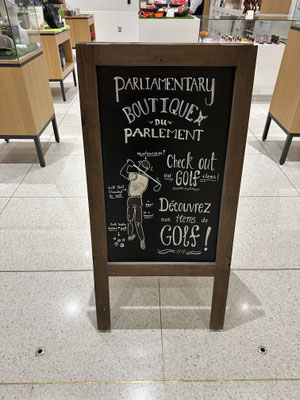 PARLIAMENTARY
BOUTIQUE
DU
PARLEMENT
Check out
our GOLF items!
Découvrez
nos items de
GOLF!